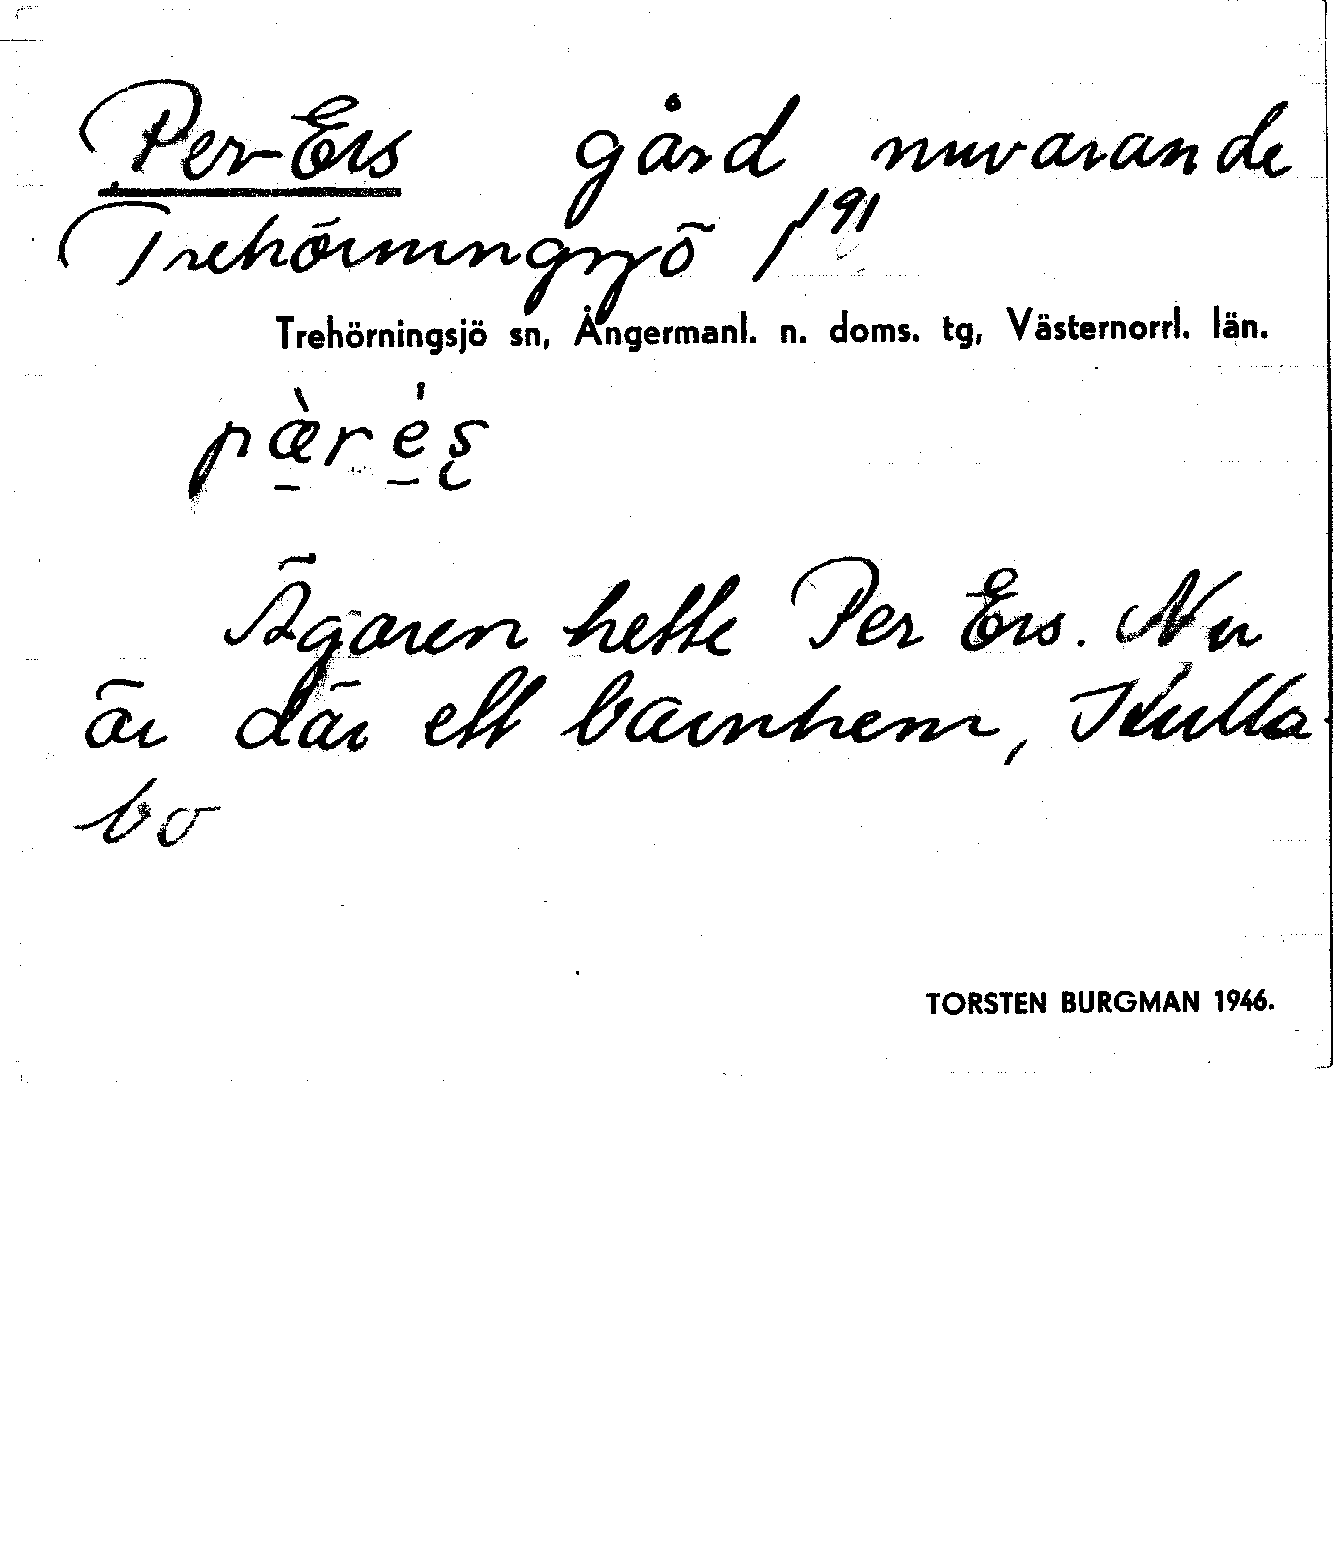 Per-Ers gård nuvarande
Trehörningsjö 1 191
Trehörningsjö sn, Ångermanl. n. doms. tg, Västernorrl. län.
pæ̀réş
Ägaren hette Per Ers. Nu
är där ett barnhem, Kulla-
bo
TORSTEN BURGMAN 1946.